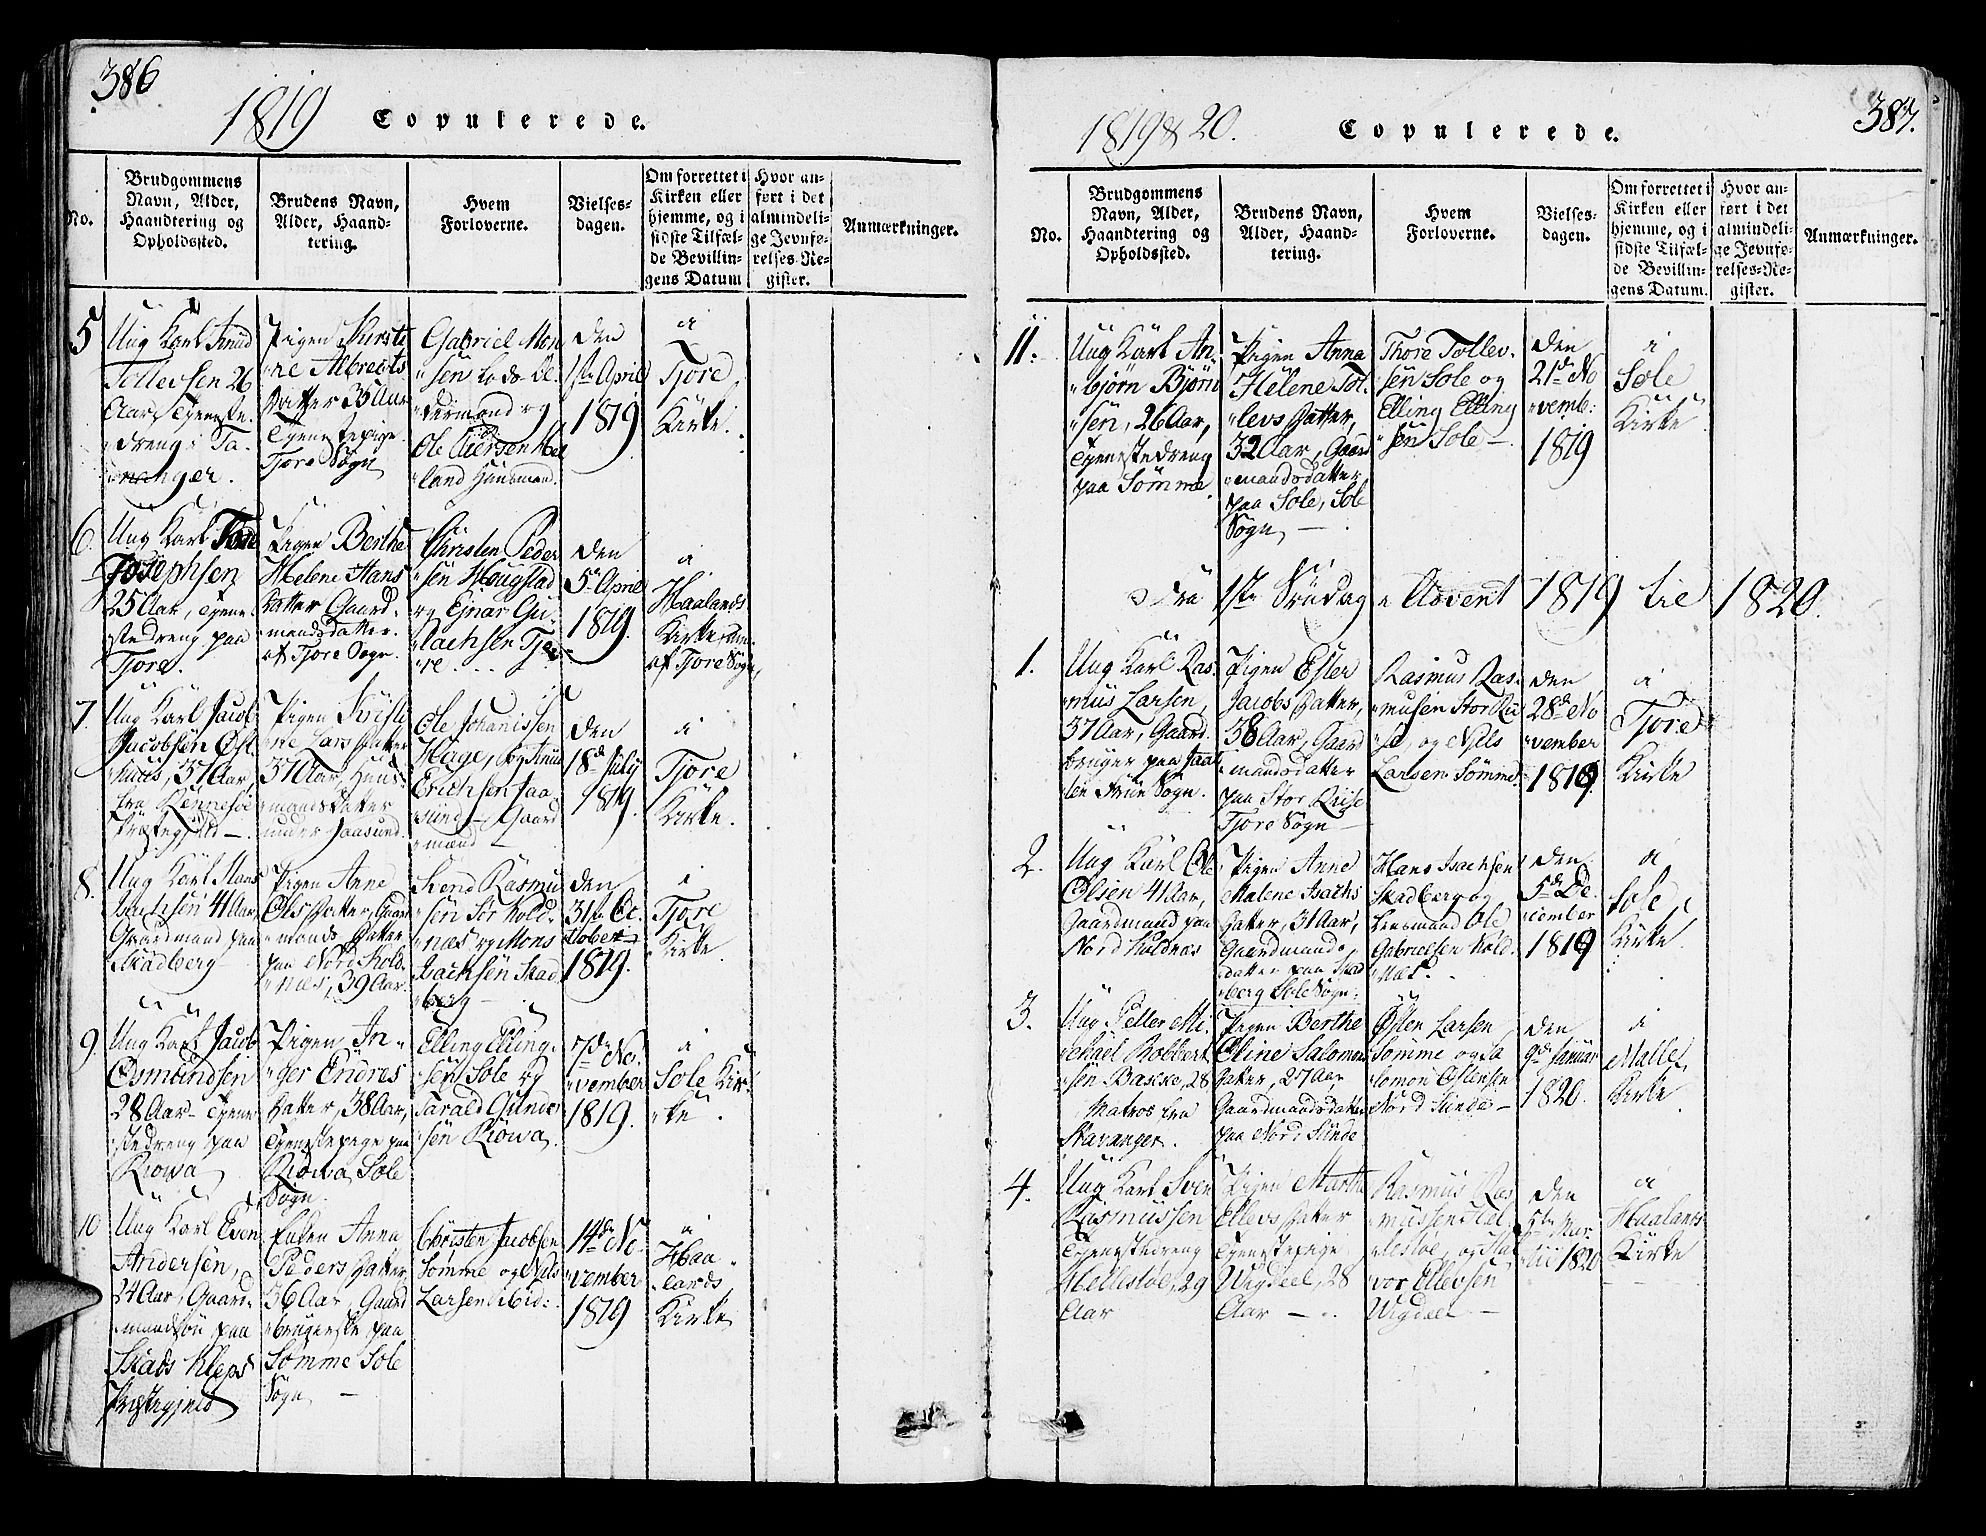 386
1819 Copulerede.
No.
Brudgommens
Navn, Alder,
Haandtering og
Opholdssted.
Brudens Navn,
Alder, Haand-
tering.
Hvem
Forloverne.
Vielses-
dagen.
Om forrettet i
Kirken eller
hjemme, og i
sidste Tilfæl-
de Bevillin-
gens Datum
Hvor an-
ført i det
almindeli-
ge Jevnfø-
relses-Re-
gister.
Anmærkninger.
5
Ung Karl Knud
Tollevsen 26
Aar, Tjeneste
dreng i Ta-
nanger.
Pigen Kirsti
ne Albrects
Datter 35 Aar
Tjenestepige
Tjore Sogn
Gabriel Mon
sen Lods De-
Ole
land Huusmand.
den
1ste April
1819
i
Tjore
Kirke.
6.
Ung Karl Tore
Josephsen
25 Aar, Tjene
stedreng paa
Tjore.
Pigen Berthe
Helene Hans
Datter Gaard-
mandsdatter
af Tjore Sogn.
Christen Peder
sen Haugstad
og Ejnar Gu-
lachsen Tjo
re.
den
5te April
1819.
i
Haalands
Kirke,
af Tjore Sogn,
7.
Ung Karl Jacob
Jacobsen Øst
huus, 37 Aar,
fra Rennesøe
Præstegjeld -
Pigen Kristi
ne Lars Datter
37 Aar, Huus-
mands Datter
under Jaasund.
Ole Johanissen
Hage, og Knud
Erichsen Jaa
sund - Gaard
mænd
den
18de July
1819.
i
Tjore
Kirke.
8.
Ung Karl Hans
Isachsen 41 Aar,
Gaardmand paa
Skadberg
Pigen Anne
Ols Datter, Gaard
mands Datter
paa Nord Kold-
næs, 39 Aar.
Svend Rasmu
sen Sør Kold-
næs og Mons
Isachsen Skad
berg -
den
31te Oc-
tober
1819.
i
Tjore
Kirke.
9.
Ung Karl Jacob
Osmundsen
28 Aar - Tjene
stedreng paa
Røwa
Pigen In-
ger Endres
Datter, 38 Aar,
Tjenestepige paa
Røwa Sole
Sogn.
Elling Elling-
sen Sole og
Tarald Gunder
sen Røwa.
7de No-
vember
1819.
i
Sole Kir-
ke.
10
Ung Karl Even
Andersen,
24 Aar, Gaard-
mandsøn paa
Skads Kleps
Præstegjeld
Enken Anna
Peders Datter
36 Aar, Gaard
brugerske paa
Sømme Sole
Sogn -
Christen Jacobsen
Sømme og Nils
Larsen ibid:
14de No-
vember
1819
i
Haa-
lands
Kirke
387.
1819 & 20. Copulerede.
No.
Brudgommens
Navn, Alder,
Haandtering og
Opholdssted.
Brudens Navn,
Alder, Haand-
tering.
Hvem
Forloverne.
Vielses-
dagen.
Om forrettet i
Kirken eller
hjemme, og i
sidste Tilfæl-
de Bevillin-
gens Datum.
Hvor an-
ført i det
almindeli-
ge Jevnfø-
relses-Re-
gister.
Anmærkninger.
11.
Ung Karl An-
bjørn Bjørn
sen, 26 Aar,
Tjenestedreng
paa Sømme.
Pigen Anna
Helene Tol-
levs Datter,
32 Aar, Gaard
mandsdatter
paa Sole, Sole
Sogn, -
Thore Tollev-
sen Sole og
Elling Elling
sen Sole -
den
21de No
vemb:
1819
i
Sole
Kirke.
Fra 1ste Søndag i Advent 1819 til 1820.
1.
Ung Karl Ras-
mus Larsen,
37 Aar, Gaard-
bruger paa Jaat
ten Sogn.
Pigen Ester
Jacobs Datter,
38 Aar, Gaard
mandsdatter
paa Stor Riise
Tjore Sogn -
Rasmus Ras-
musen Stor Ri
se, og Nils
Larsen Sømme
den
28de No
vember
1819
i
Tjore
Kirke
2.
Ung Karl Ole
Olsen 41 Aar,
Gaardmand paa
Nord Kuldnæs
Pigen Anne
Malene Isachs
Datter, 31 Aar,
Gaardmands-
datter paa Skad
berg Sole Sogn.
Hans Isachsen
Skadberg og
Lensmand Ole
Gabrielsen Kold-
næs.
den
5te De-
cember
1819
i
Sole
Kirke
3.
Ung Petter Mi-
chael Robbert
sen Bascke, 28
Matros fra
Stavanger.
Pigen Berthe
Eline Salomons
Datter, 27 Aar
Gaardmandsdatter
paa Nord Sunde
Østen Larsen
Sømme og Sa
lomon Østensen
Nord Sunde -
den
9de Januar
1820.
i
Malle
Kirke
4.
Ung Karl Sven
Rasmussen
Tjenestedreng
Hellestøe, 29
Aar
Pigen Marthe
Ellevs Datter
Tjenestepige
Wigdeel, 28
Aar -
Rasmus Ras
mussen Hel-
lestøe, og Hal
vor Ellevsen
Wigdeel -
den
5te Mar-
tii 1820
i
Haalands
Kirke